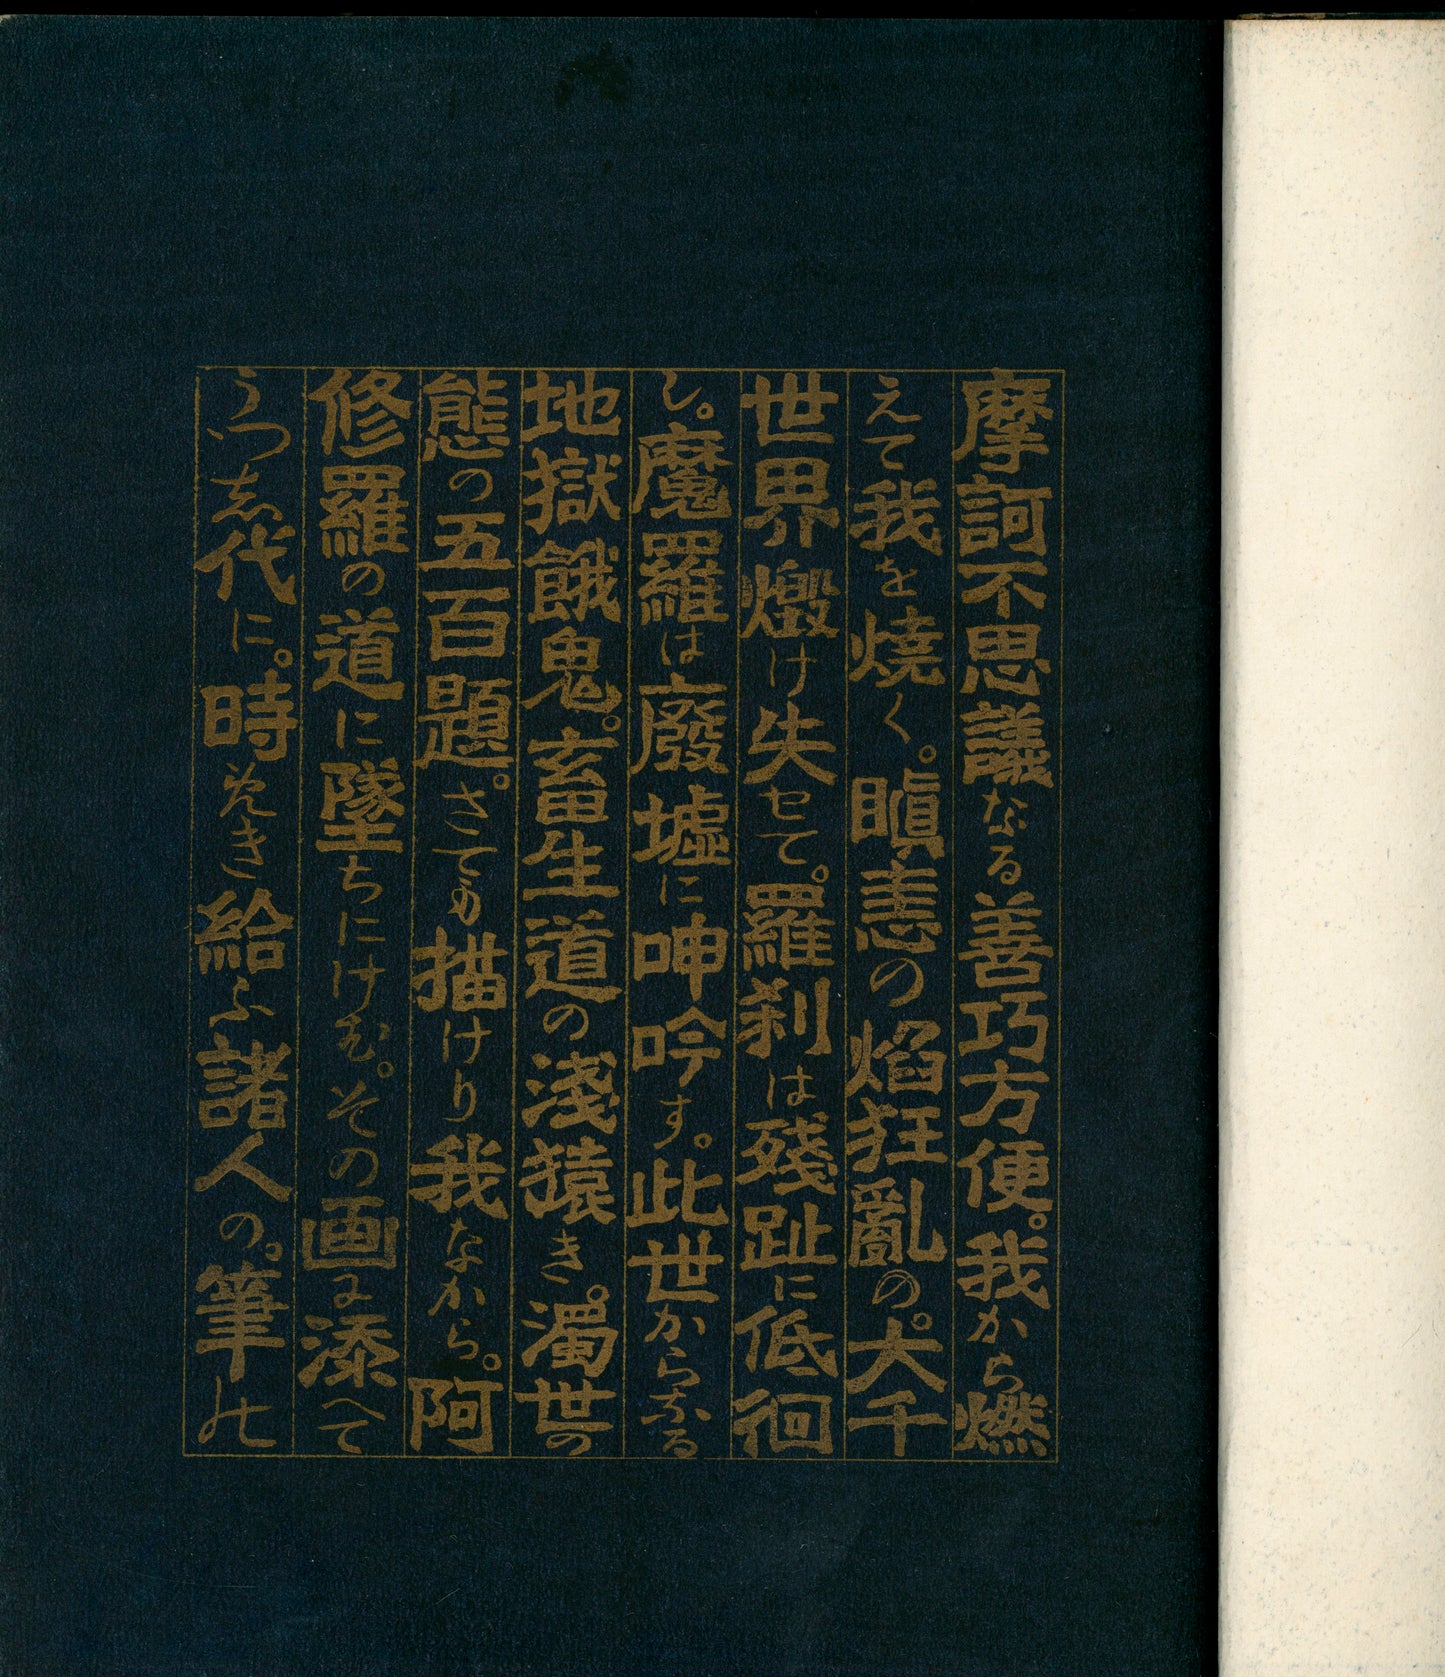 摩訶不思議なる善巧方便。我から燃
えて我を燒く。瞋恚の焰狂亂の。大千
世界燬け失せて。羅刹は殘趾に低徊
し。魔羅は廢墟に呻吟す。此世からなる
地獄餓鬼。畜生道の淺猿き。濁世の
態の五百題。さても描けり我なから。阿
修羅の道に墜ちにけむ。その画に添へて
うつし代に。時めき給ふ諸人の。筆の